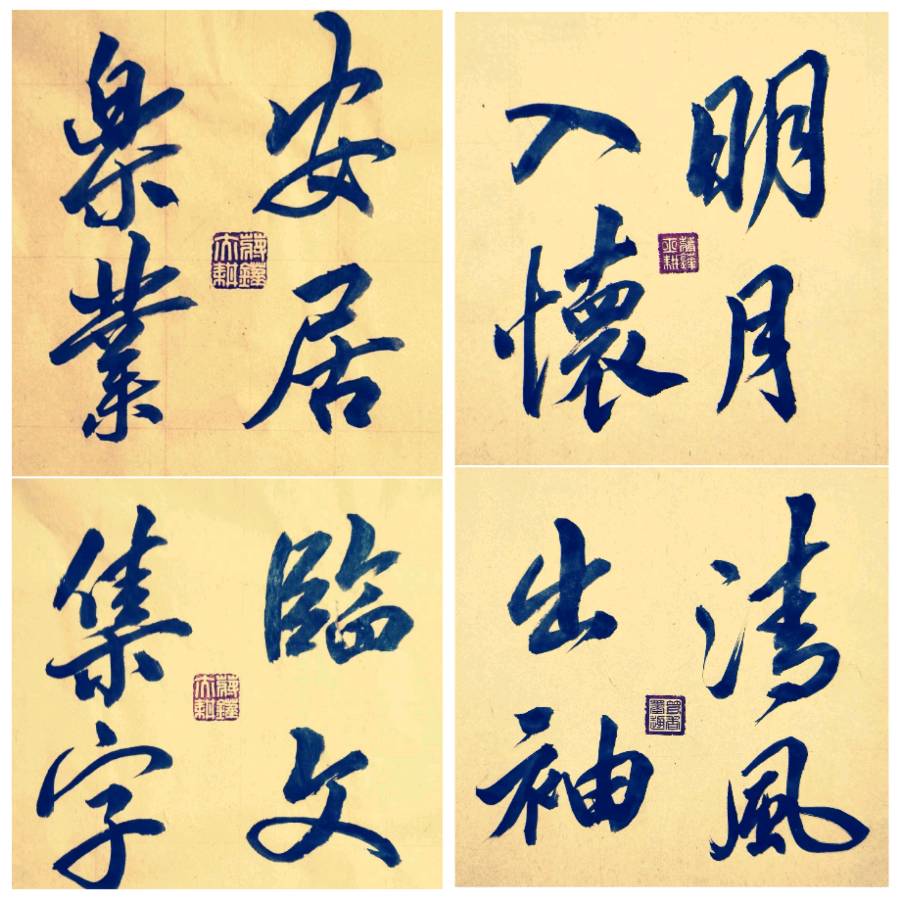 安居
樂業
明月
入懷
臨文
集字
清風
出袖